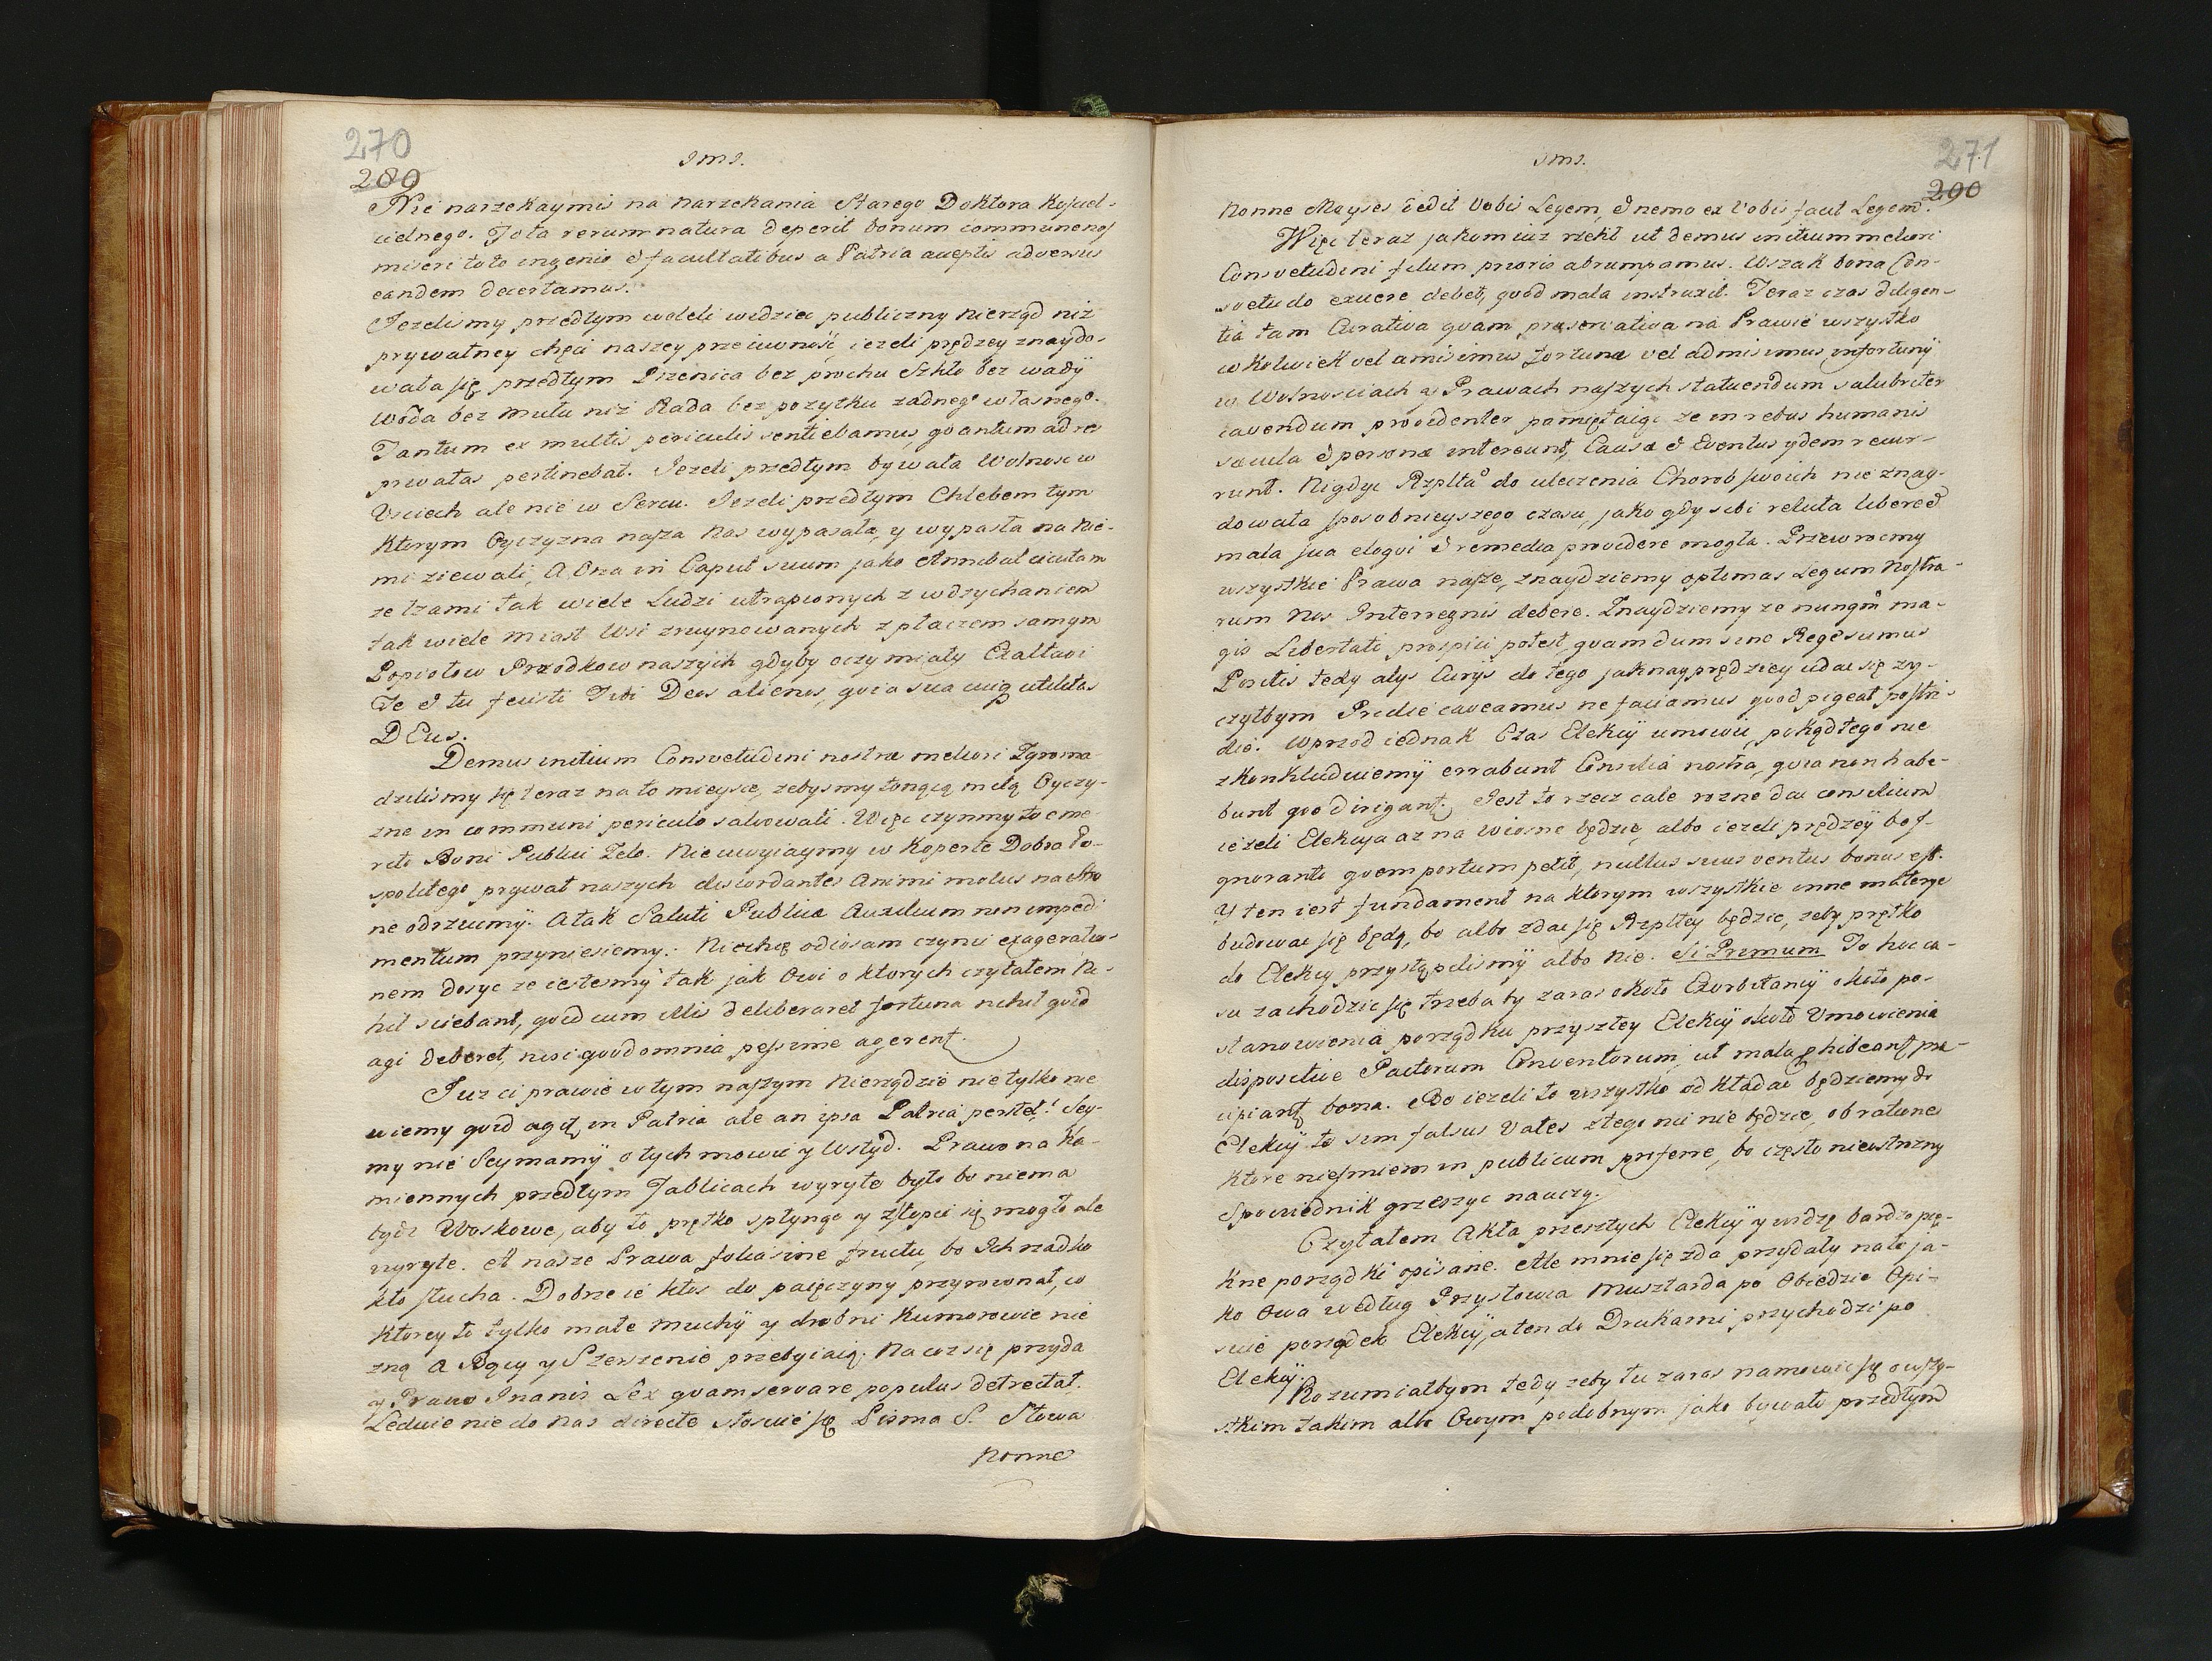 270
289
JMJ.
Nie narzekaymis na narzekania Starego Doktora Kosciel-
cielnego. Tota rerum natura deperit bonum commune nos
miseri toto ingenio & facultatibus a Patria acceptis adversus
eandem decertamus.
Jezelismy przedtym woleli widziec publiczny nierząd niz
prywatney chęci naszey przeciwność, iezeli prędzey znaydo-
wała się przedtym Przenica bez prochu Szkło bez wady
Woda bez mułu niz Rada bez pozytku zadnego własnego.
Tantum ex multis periculis sentiebamus, qvantum ad res
privatas pertinebat. Jezeli przedtym bywała Wolnosc w
Usciech ale nie w Sercu. Jezeli przedtym Chlebem tym
Ktorym Oyczyzna nasza nas wypasała, y wypasła na nie-
mi ziewali, A Ona in Caput suum jako Annibal cicutam
ze łzami tak wiele Ludzi utrapionych z wdzychaniem
tak wiele miast Wsi zruynowanych z płaczem samym
Popiołow Przodkow naszych gdyby oczy miały Exaltavi
Te & tu fecisti Tibi Deos alienos, qvia sua cuiq utilitas
DEus.
Demus initium Consvetudini nostræ meliori Zgroma-
dzilismy się teraz na to mieysce, zebysmy tonącą miłą Oyczy-
znę in communi periculo salvowali. Więc czynmy to eme-
rito Boni Publici Zelo. Nie uwyiaymy w Koperte Dobra Po-
spolitego prywat naszych discordantes Animi motus na Stro
ne odrzucmy. A tak Saluti Publicæ Auxilium non impedi
mentum przyniesiemy. Niechcę odiosam czynic exageratio-
nem dosyc ze iestesmy tak jak Owi o ktorych czytałem Ni-
hil sciebant, qvid cum illis deliberaret fortuna nihil qvid
agi deberet, nisi qvod omnia pessime agerent.
Juz ci prawie w tym naszym nierządzie nie tylko nie
wiemy qvid agit in Patria ale an ipsa Patria perstet! Sey-
my nie Seymamy o tych mowic y Wstyd. Prawo na Ka-
miennych przedtym Tablicach wyryte było bo niema
bydz Woskowe, aby to prętko spłynąc y zstopic się mogło ale
wyryte. A nasze Prawa folia sine fructu, bo Ich rzadko
kto słucha. Dobrze ie ktos do paięczyny przyrownał, w
Ktorey to tylko małe muchy y drobni Kumorowie nie
zną A Bący y Szerszenie przebyiaią. Na coz się przyda
y Prawo Inanis Lex qvam servare populus detrectat.
Ledwie nie do nas directe stosuie się Pisma S. Słowa
Nonne
271
290
JMJ.
Nonne Moyses dedit Vobis Legem, & nemo ex Vobis facit Legem.
Więc teraz jakom iuz rzekł ut demus initium meliori
Consvetudini filum prioris abrumpamus. Wszak bona Con-
svetudo exuere debet, qvod mala instruxit. Teraz czas diligen-
tia tam Curativa qvam præservativa na Prawie wszystko
cokolwiek vel amisimus fortunæ vel admisimus infortunÿ
w Wolnosciach y Prawach naszych statuendum salubriter
cavendum providenter pamiętaiąc ze in rebus humanis
sæcula & personæ intereunt, Causæ & Eventus ÿdem recur-
runt. Nigdyc Rzpltā do uleczenia Chorob swoich nie znay-
dowała sposobnieyszego czasu, jako gdy sibi reluta libere &
mala sua eloqvi & remedia providere mogła. Przewrocmy
wszystkie Prawa nasze, znaydziemy optimas Legum Nostra-
rum Nos Interregnis debere. Znaydziemy ze nunqm ma-
gis Libertati prospici potest qvam dum sine Rege sumus
Positis tedy alys Curÿs do tego jaknayprędzey udac się zy-
czyłbym Pridie caveamus ne faciamus qvod pigeat postri-
die. Wprzod iednak Czas Elekcÿ umowic, pokąd tego nie
zkonkluduiemy errabunt Consilia nostra, qvia non habe-
bunt qvo dirigant. Jest to rzecz cale rozne dac consilium
iezeli Elekcya az na wiosne będzie, albo iezeli prędzey bo J-
gnoranti qvem portum petit, nullus suus ventus bonus est.
Y ten iest fundament na ktorym wszystkie inne materye
budowac się będą, bo albo zdac się Rzpltey będzie, zeby prętko
do Elekcÿ przystąpilismy albo nie. Si Primum To hoc ca-
su zachodzic się trzeba by zaras około Exorbitancÿ około po-
stanowienia porządku przyszłey Elekcÿ około Umowienia
dispositive Pactorum Conventorum, ut mala phibeant præ-
cipiant bona. Bo iezeli to wszystko odkładac będziemy do
Elekcÿ to sim falsus Vates z tego nic nie będzie, ob ratione
Ktore niesmiem in publicum proferre, bo często nieostrozny
Spowiednik grzeszyc nauczy.
Czytałem Akta przeszłych Elekcÿ y widzę bardzo pię-
kne porządki opisane. Ale mnie się zda przydały na to ja-
ko Owa według Przysłowia Musztarda po Obiedzie Opi-
suie porządek Elekcÿ, a ten do Drukarni przychodzi po
Elekcÿ.
Rozumiałbym tedy zeby tu zaras namowic się o wszy-
stkim takim albo Owym podobnym jako bywało przedtym